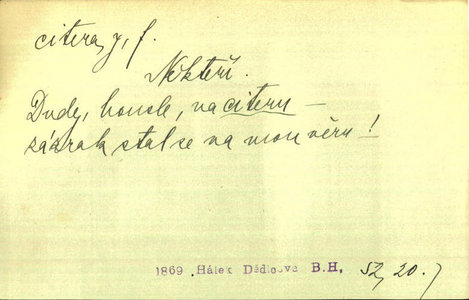 citera, y, f.
Někteří.
Dudy, housle, na citeru –
zázrak stal se na mou věru!
1869 Hálek Dědicové B.H. SZ, 20.